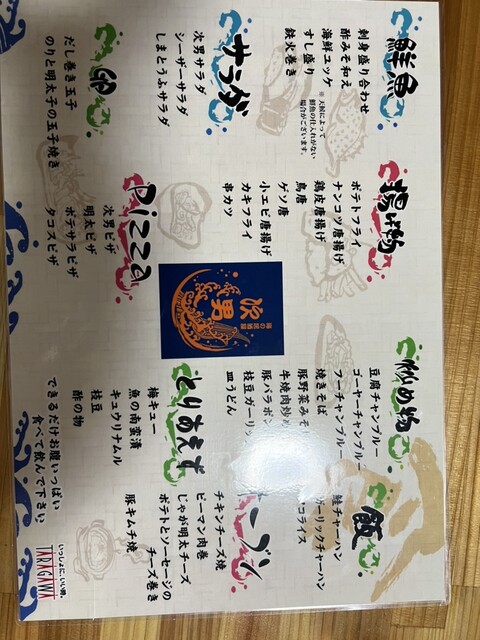 鮮魚
刺身盛り合わせ
酢みそ和え
海鮮ユッケ
すし盛り
鉄火巻き
※天候によって
鮮魚の仕入れがない
場合がございます。
揚げ物
ポテトフライ
ナンコツ唐揚げ
鶏皮唐揚げ
鳥唐
ゲソ唐
小エビ唐揚げ
カキフライ
串カツ
炒め物
豆腐チャンプルー
ゴーヤーチャンプルー
フーチャンプルー
焼きそば
豚野菜みそ
牛焼肉炒め
豚バラポン
枝豆ガーリック
皿うどん
飯
鮭チャーハン
ガーリックチャーハン
コライス
サラダ
次男サラダ
シーザーサラダ
しまとうふサラダ
Pizza
次男ピザ
明太ピザ
ポテサラピザ
タコスピザ
次男
とりあえず
梅キュー
魚の南蛮漬
キュウリナムル
枝豆
酢の物
ーブン
チキンチーズ焼
ピーマン肉巻
じゃが明太チーズ
ポテトとソーセージの
チーズ巻き
豚キムチ焼
卵
だし巻き玉子
のりと明太子の玉子焼き
できるだけお腹いっぱい
食べて飲んで下さい
いっしょに、いい明。
TARAGAWA